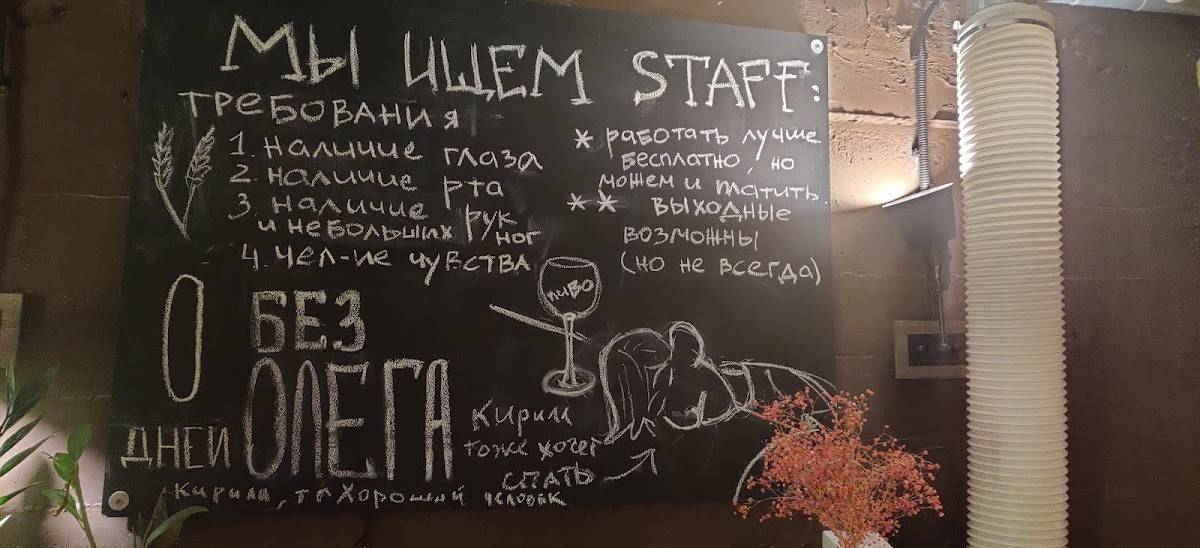 МЫ ИЩЕМ STAFF:
ТРЕБОВАНИЯ
1. НАЛИЧИЕ ГЛАЗА
2. НАЛИЧИЕ РТА
3. НАЛИЧИЕ РУК
И НЕБОЛЬШИХ НОГ
4. ЧЕЛ-ИЕ ЧУВСТВА
* РАБОТАТЬ ЛУЧШЕ
БЕСПЛАТНО, НО
МОЖЕМ И ПЛАТИТЬ.
** ВЫХОДНЫЕ
ВОЗМОЖНЫ
(НО НЕ ВСЕГДА)
ПИВО
0 БЕЗ
ДНЕЙ ОЛЕГА
Кирилл
тоже хочет
СПАТЬ
Кирилл, ты хороший человек